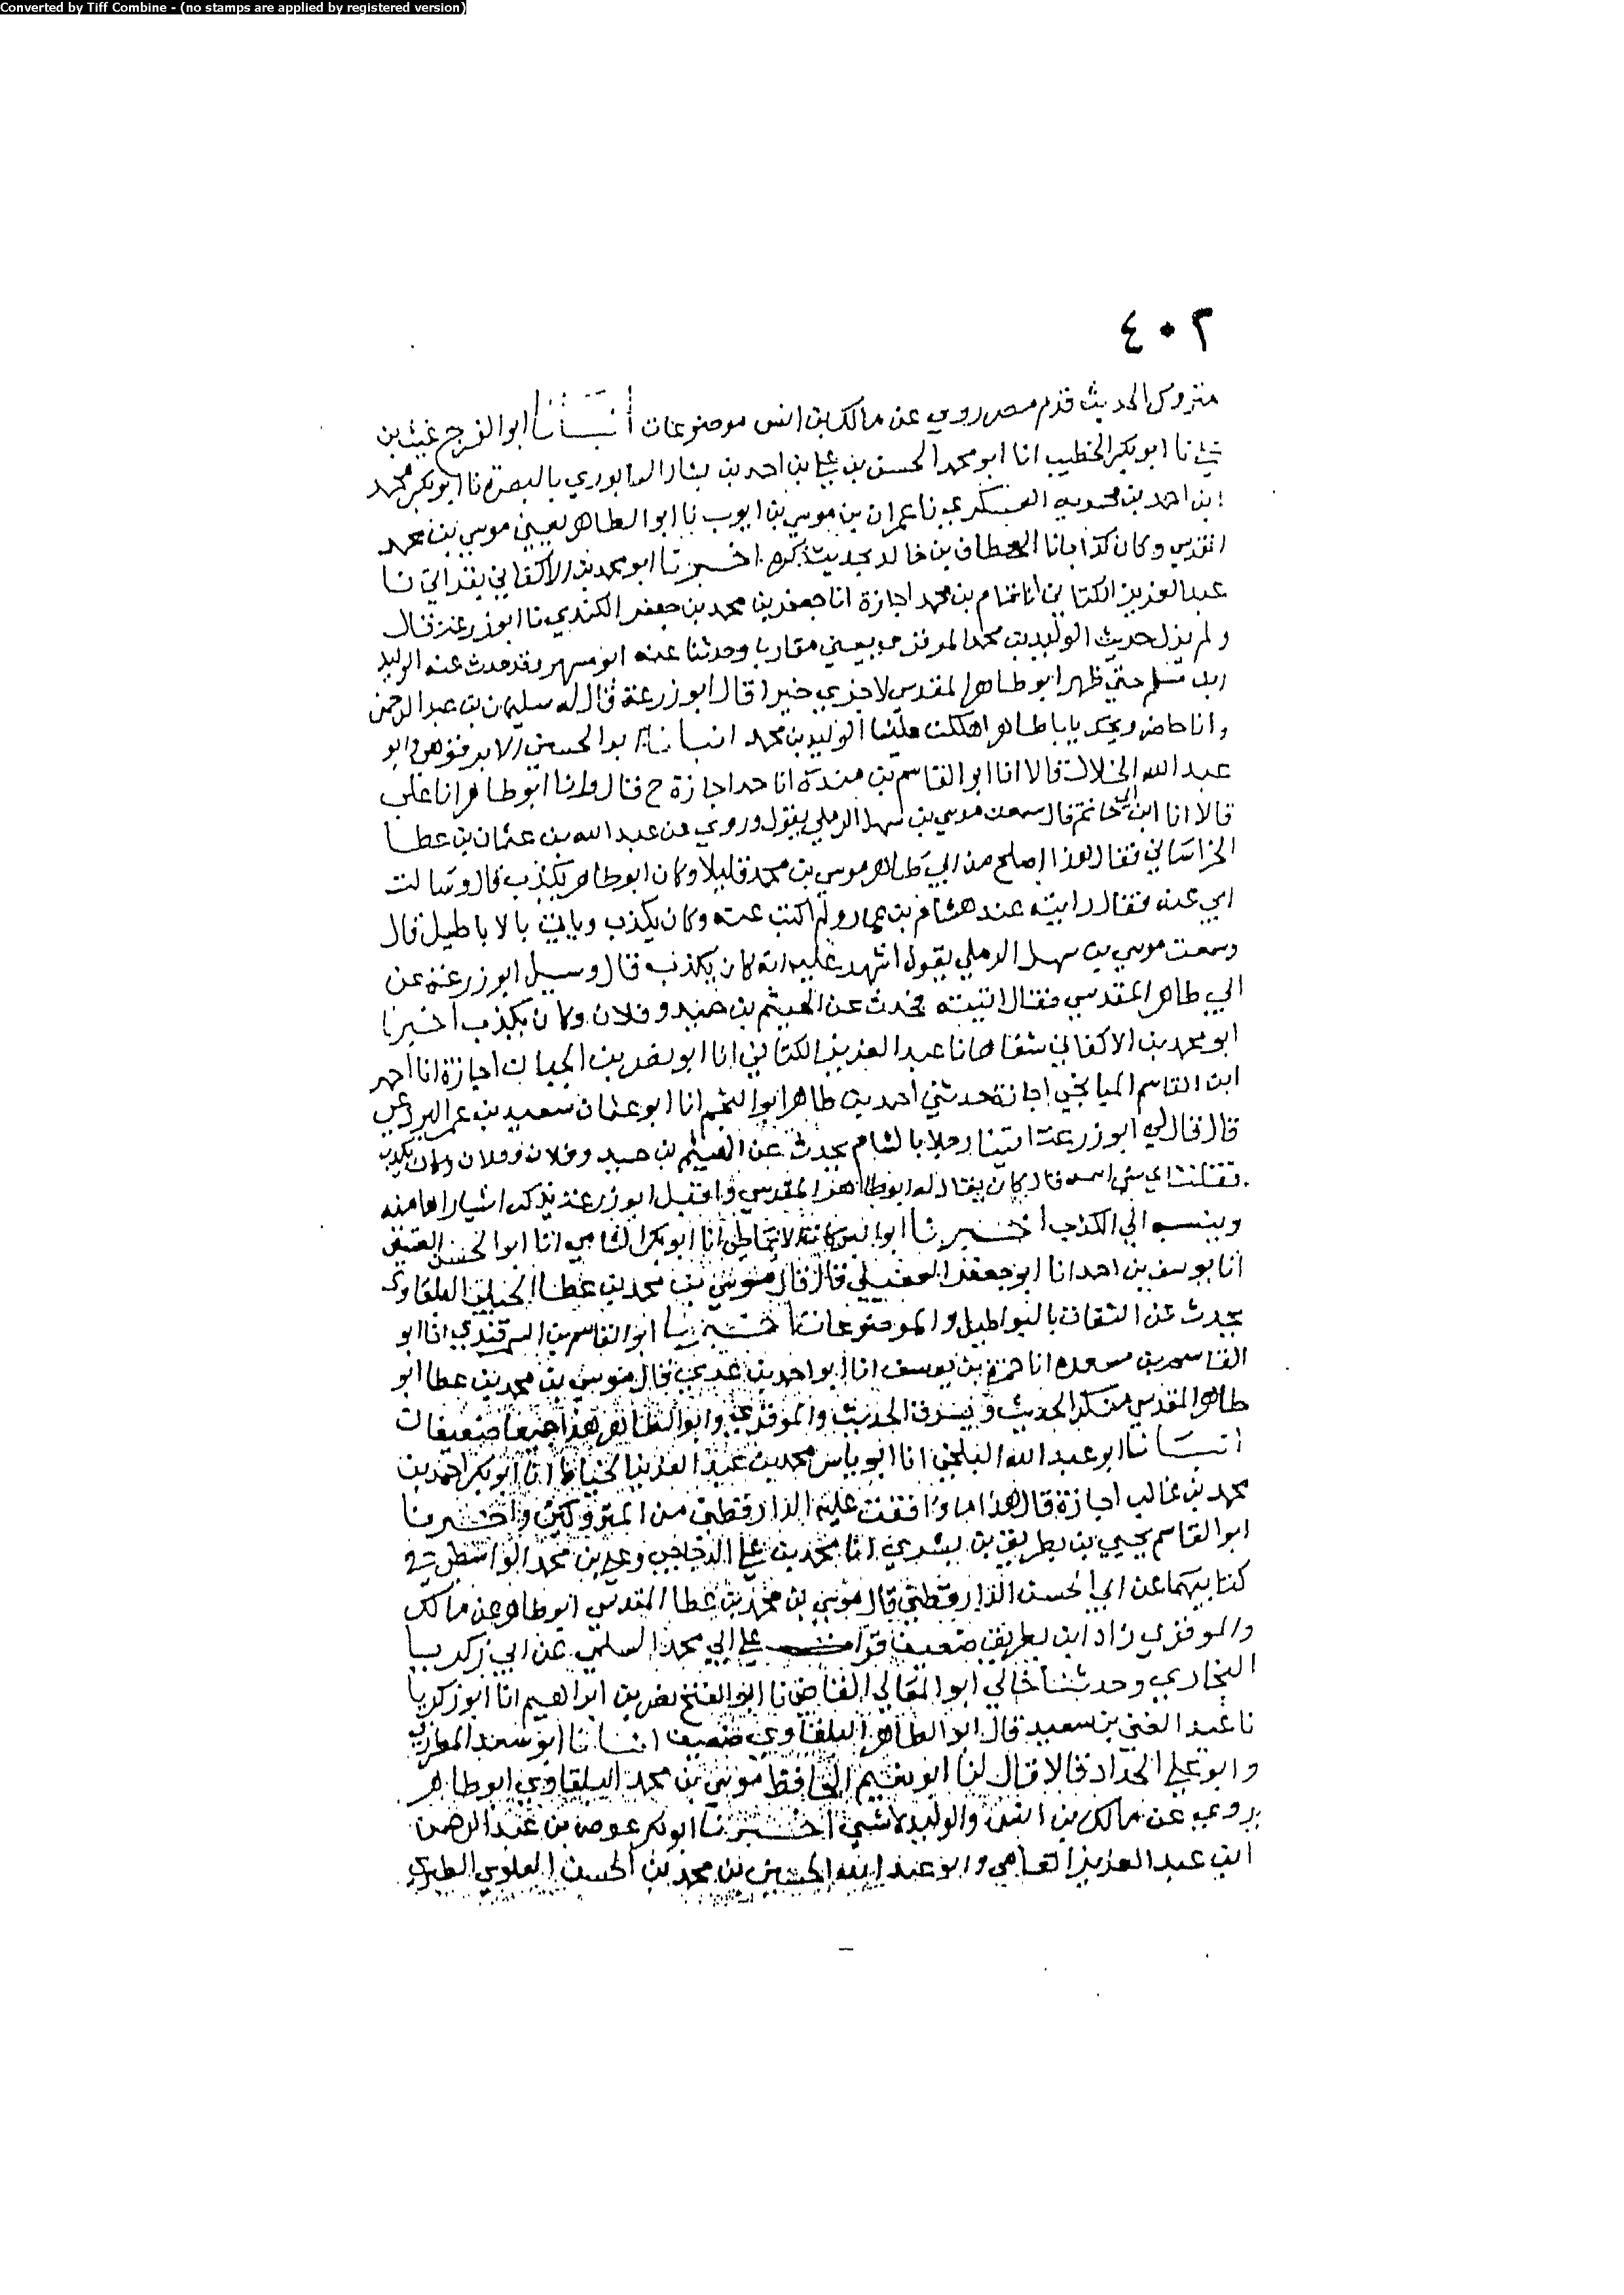 Converted by Tiff Combine - (no stamps are applied by registered version)
٤٠٢
متروك الحديث قدم مصر روي عن مالك بن انس موضوعات أنبأنا ابو الفرج غيث بن
علي نا ابو بكر الخطيب انا ابو محمد الحسن بن علي بن احمد بن بشار السابوري بالبصرة نا ابو بكر محمد
ابن احمد بن محمويه العسكري نا عمران بن موسي بن ايوب نا ابو الطاهر يعني موسي بن محمد
المقدسي وكان كذابا نا العطاف بن خالد بحديث ذكره اخبرنا ابو محمد بن الاكفاني بقراتي نا
عبد العزيز الكتاني انا تمام بن محمد اجازة انا جعفر بن محمد بن جعفر الكندي نا ابو زرعة قال
ولم يزل حديث الوليد بن محمد الموقري يعني مقاربا وحدثنا عنه ابو مسهر وقد حدث عنه الوليد
ابن مسلم حتي ظهر ابو طاهر المقدسي لا جزي خيرا قال ابو زرعة قال له سليمان بن عبد الرحمن
وانا حاضر ويحك يابا طاهر اهلكت علينا الوليد بن محمد انبانا ابو الحسين الابرقوهي وابو
عبد الله الخلال قالا انا ابو القاسم بن مندة انا حمد اجازة ح قال وانا ابو طاهر انا علي
قالا انا ابن ابي حاتم قال سمعت موسي بن سهل الرملي يقول وروي عن عبد الله بن عثمان بن عطا
الخراساني فقال هذا اصلح من ابي طاهر موسي بن محمد قليلا وكان ابو طاهر يكذب قال وسالت
ابي عنه فقال رايته عند هشام بن عمار ولم اكتب عنه وكان يكذب وياتي بالاباطيل قال
وسمعت موسي بن سهل الرملي يقول اشهد عليه انه كان يكذب قال وسيل ابو زرعة عن
ابي طاهر المقدسي فقال اتيته فحدث عن الهيثم بن حميد وفلان وكان يكذب اخبرنا
ابو محمد بن الاكفاني شفاها نا عبد العزيز الكتاني انا ابو نصر بن الجبان اجازة انا احمد
ابن القاسم الميانجي اجازة حدثني احمد بن طاهر ابو النجم انا ابو عثمان سعيد بن عمر البرذعي
قال قال لي ابو زرعة اتينا رجلا بالشام يحدث عن الهيثم بن حميد وفلان وفلان وكان يكذب
فقلت اي شي اسمه قال كان يقال له ابو طاهر المقدسي واقبل ابو زرعة يذكر اشيا راها منه
وينسبه الي الكذب اخبرنا ابو البركات الانماطي انا ابو بكر الشامي انا ابو الحسن العتيقي
انا يوسف بن احمد انا ابو جعفر العقيلي قال قال موسي بن محمد بن عطا الجيلي البلقاوي
يحدث عن الثقات بالبواطيل والموضوعات اخبرنا ابو القاسم بن السمرقندي انا ابو
القاسم بن مسعده انا حمزة بن يوسف انا ابو احمد بن عدي قال موسي بن محمد بن عطا ابو
طاهر المقدسي منكر الحديث ويسرق الحديث والموقري وابو الطاهر هذا جميعا ضعيفان
انبانا ابو عبد الله البلخي انا ابو ياسر محمد بن عبد العزيز الخياط انا ابو بكر احمد بن
محمد بن غالب اجازة قال هذا ما وافقت عليه الدارقطني من المتروكين واخبرنا
ابو القاسم يحيي بن بطريق بن بشري انا محمد بن علي الدجاجي وعلي بن محمد الواسطي في
كتابيهما عن ابي الحسن الدارقطني قال موسي بن محمد بن عطا المقدسي ابو طاهر عن مالك
والموقري زاد ابن بطريق ضعيف قرات علي ابي محمد السلمي عن ابي زكريا
البخاري وحدثنا خالي ابو المعالي القاضي نا ابو الفتح نصر بن ابراهيم انا ابو زكريا
نا عبد الغني بن سعيد قال ابو الطاهر البلقاوي ضعيف انبانا ابو سعد المطرز
وابو علي الحداد قالا قال لنا ابو نعيم الحافظ موسي بن محمد البلقاوي ابو طاهر
يروي عن مالك بن انس والوليد لا شي اخبرنا ابو بكر عوض بن عبد الرحمن
ابن عبد العزيز القاضي وابو عبد الله الحسين بن محمد بن الحسن العلوي الطبري